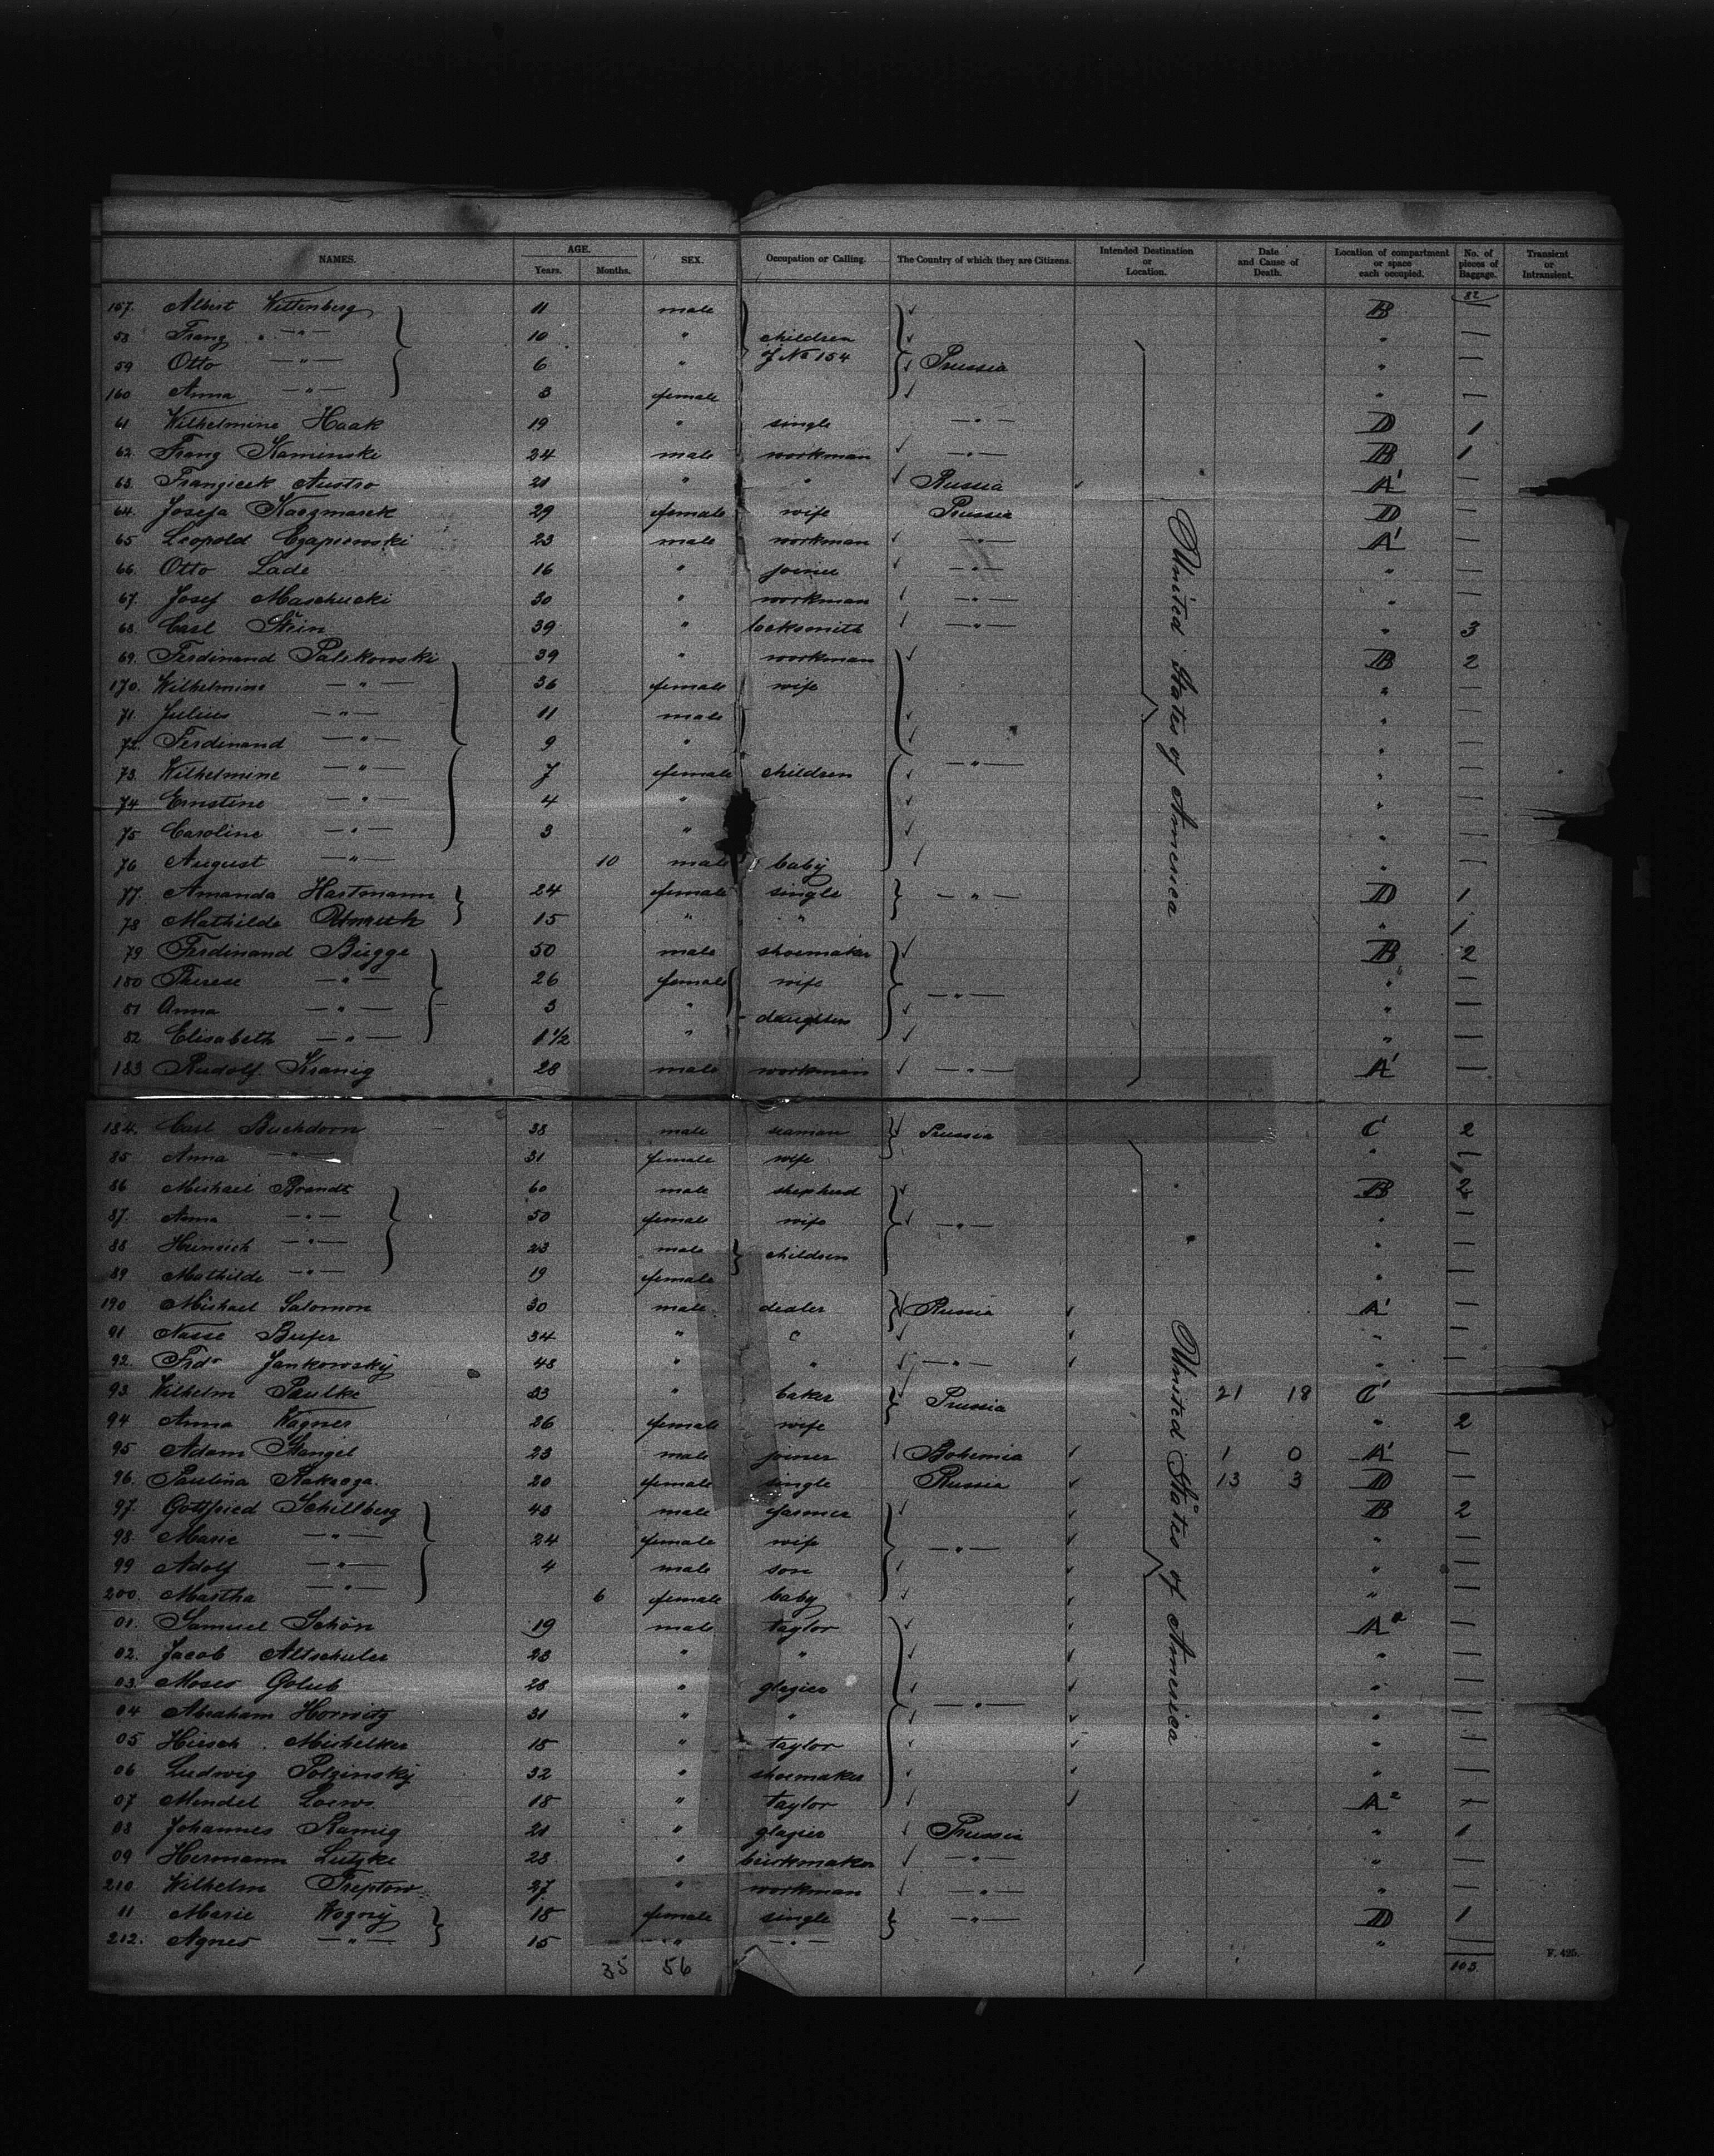 NAMES. AGE. Years. Months. SEX. Occupation or Calling. The Country of which they are Citizens. Intended Destination or Location. Date and Cause of Death. Location of compartment or space each occupied. No. of pieces of Baggage. Transient or Intransient.
82
157. Albert Wittenberg 11 male B
58 Franz — " — 10 " children " —
59 Otto — " — 6 " of No 154 Prussia " —
160 Anna — " — 3 female " —
61 Wilhelmine Haak 19 " single — " — D 1
62. Franz Kaminski 24 male workman — " — B 1
63. Franzicek Austro 21 " " Russia A1 —
64. Josefa Kaczmarek 29 female wife Prussia D —
65 Leopold Czapiewski 23 male workman — " — A1 —
66. Otto Lade 16 " joiner — " — " —
67. Josef Maschucki 30 " workman — " — " —
68. Carl Stein 39 " locksmith — " — " 3
69. Ferdinand Palikowski 39 " workman B 2
170. Wilhelmine — " — 36 female wife " —
71. Julius — " — 11 male " —
72. Ferdinand — " — 9 " " —
73. Wilhelmine — " — 7 female children — " — " —
74 Ernstine — " — 4 " " —
75 Caroline — " — 3 " " —
76 August — " — 10 male baby " —
77. Amanda Hartmann 24 female single — " — D 1
78 Mathilde 15 " " " 1
79 Ferdinand Bügge 50 male shoemaker B 2
180 Therese — " — 26 female wife " —
81 Anna — " — 3 " daughters — " — " —
82 Elisabeth — " — 1 1/2 " " —
183 Rudolf Kranig 28 male workman — " — A1 —
United States of America
184. Carl Buchdorn 38 male seaman Prussia C 2
85 Anna 31 female wife "
86 Michael Brandt 60 male shepherd B 2
87. Anna — " — 50 female wife — " — " —
88 Heinrich — " — 23 male children " —
89 Mathilde — " — 19 female " —
190 Michael Salomon 30 male dealer Russia A1 —
91 Nasse 34 " " " —
92. Frdr Jankowsky 48 " " — " — " —
93. Wilhelm Paulke 33 " baker Prussia 21 18 C
94 Anna Wagner 26 female wife " 2
95 Adam Stangel 23 male joiner Bohemia 1 0 A1 —
96. Paulina 20 female single Russia 13 3 D —
97. Gottfried Schillberg 43 male farmer B 2
98. Marie — " — 24 female wife — " — " —
99 Adolf — " — 4 male son " —
200. Martha — " — 6 female baby " —
01. Samuel Schön 19 male taylor A2 —
02. Jacob Altschuler 23 " " " —
03. Moses Golub 28 " glazier " —
04 Abraham Horwitz 31 " " — " — " —
05 Hirsch Michelker 18 " taylor " —
06 Ludwig Polzinsky 32 " shoemaker " —
07 Mendel Loews 18 " taylor A2 —
08 Johannes Ramig 21 " glazier Prussia " 1
09 Hermann Lutzke 23 " brickmaker — " — " —
210 Wilhelm Treptow 27 " workman — " — " —
11 Marie Wogory 18 female single — " — D 1
212. Agnes — " — 15 — " — — " — "
United States of America
35 56 103
F. 425.